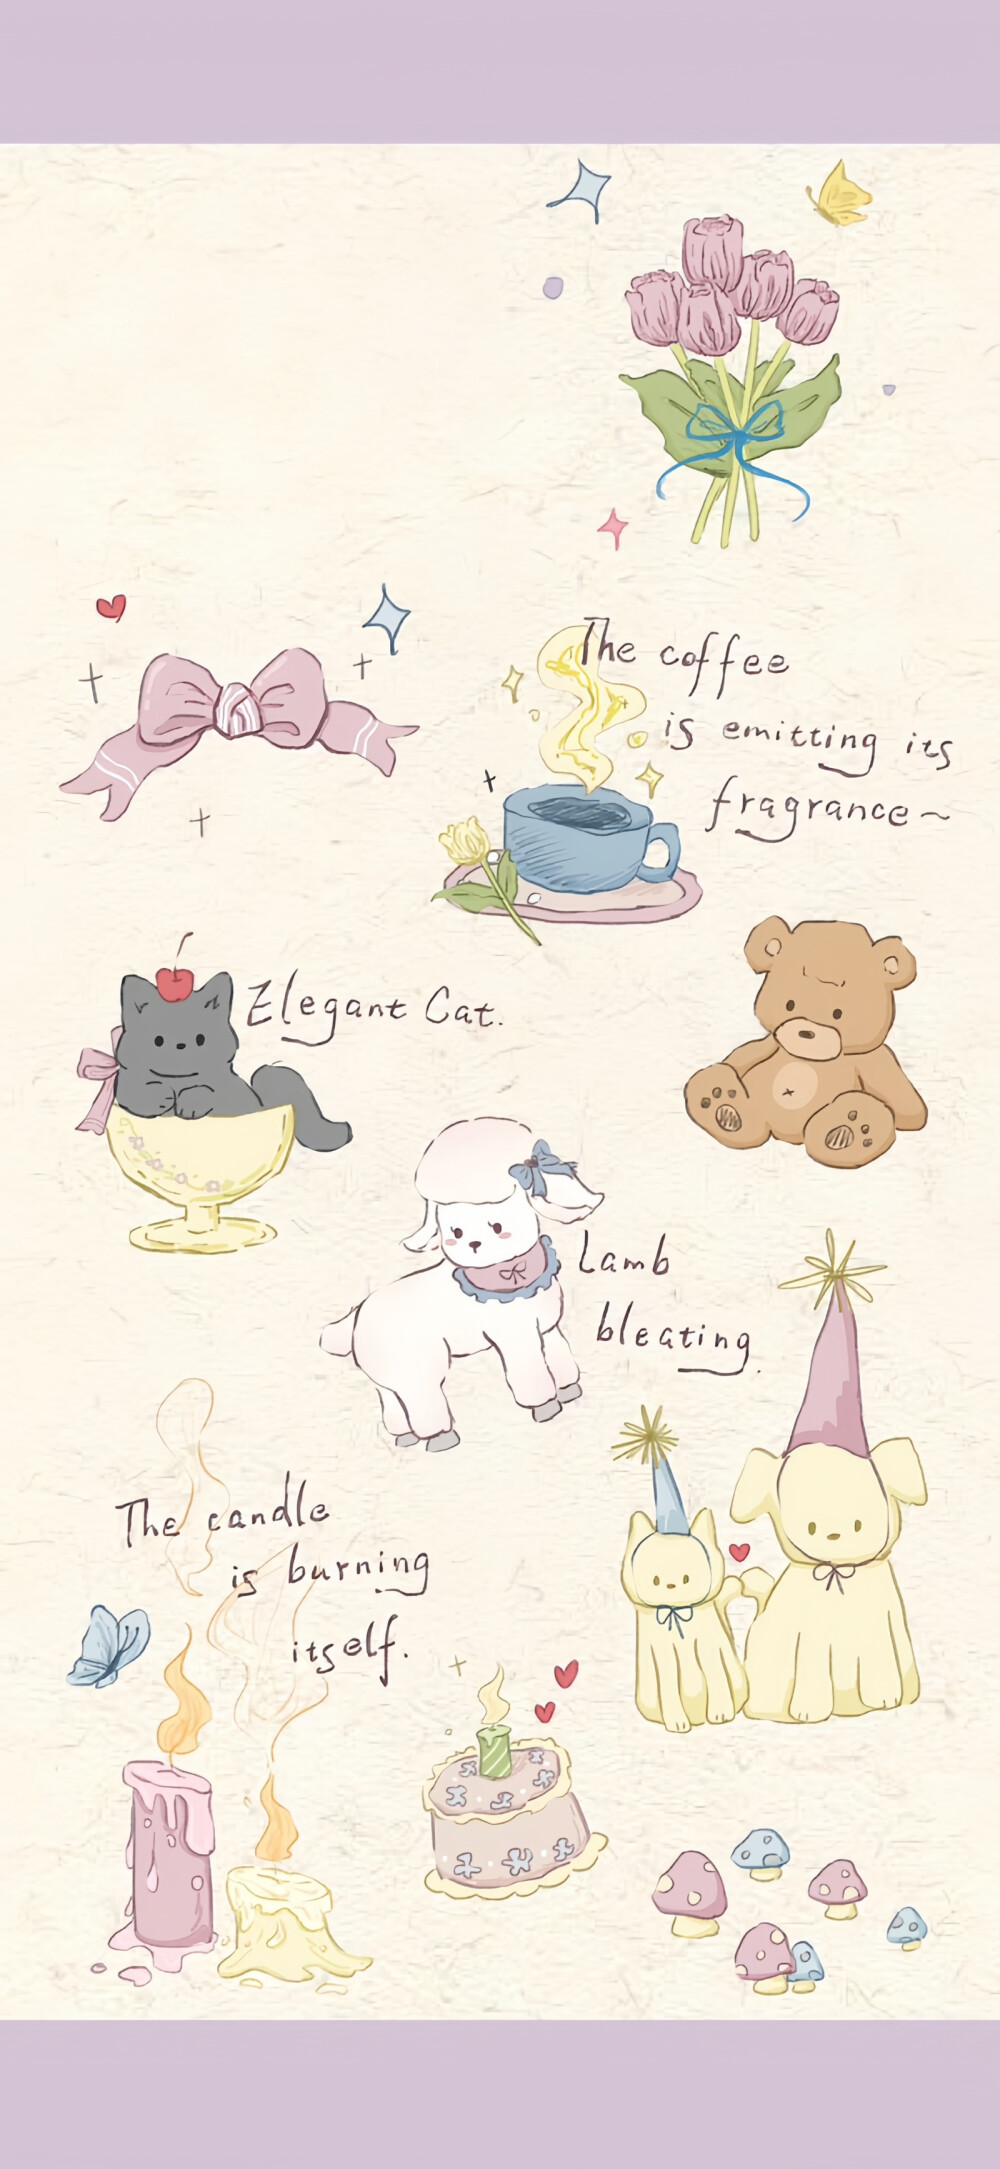 The coffee
is emitting its
fragrance~
Elegant Cat.
Lamb
bleating.
The candle
is burning
itself.